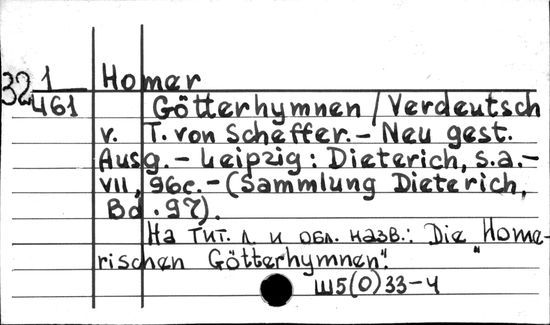 32 1/461
Homer
Götterhymnen / Verdeutsch
v. T. von Scheffer. - Neu gest.
Ausg. - Leipzig: Dieterich, s.a. -
VII, 96c. - (Sammlung Dieterich,
Bd. 97).
На тит. л. и обл. назв.: "Die Home-
rischen Götterhymnen".
Ш5(0)33-4